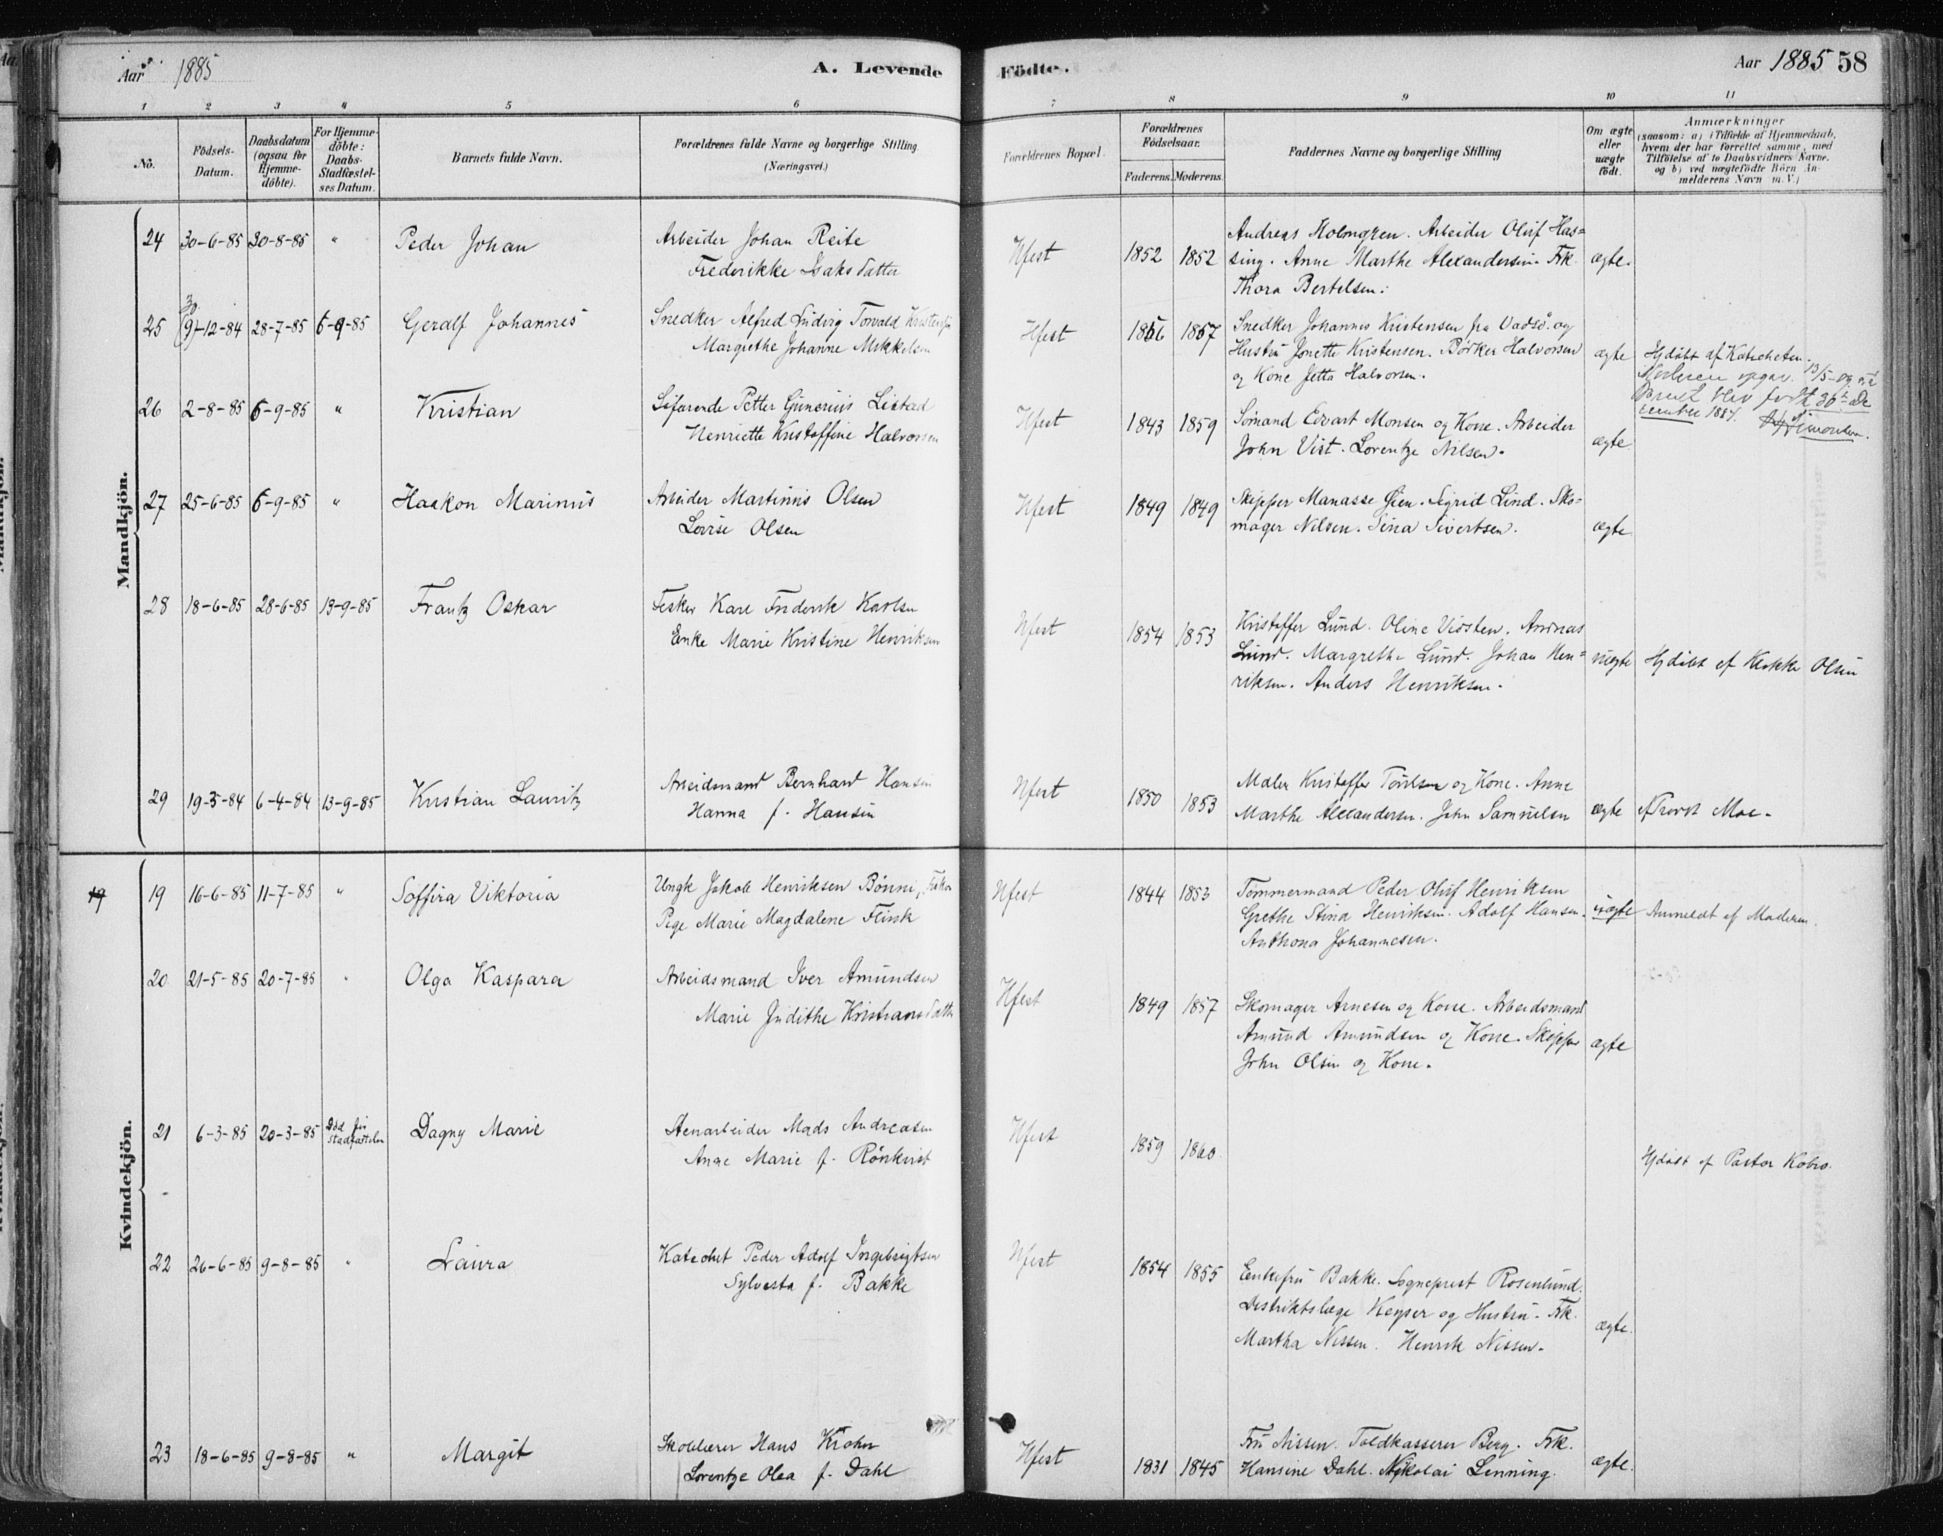 Aar 1885
A. Levende Födte.
Aar 1885 58
1 2 3 4 5 6 7 8 9 10 11
No.
Födsels-Datum.
Daabsdatum (ogsaa for Hjemmedöbte).
For Hjemmedöbte: Daabs-Stadfæstelses Datum.
Barnets fulde Navn.
Forældrenes fulde Navne og borgerlige Stilling (Næringsvei.)
Forældrenes Bopæl.
Forældrenes Födselsaar.
Faderens. Moderens.
Faddernes Navne og borgerlige Stilling
Om ægte eller uægte födt.
Anmærkninger
(saasom: a) i Tilfælde af Hjemmedaab,
hvem der har forrettet samme, med
Tilföielse af to Daabsvidners Navne.
og b) ved uægtefödte Börn An-
melderens Navn m. V.)
Mandkjön.
24 30-6-85 30-8-85 " Peder Johan
Arbeider Johan Reite
Frederikke Isaksdatter
Hfest 1852 1852
Andreas Holmgren. Arbeider Oluf Has=
sing. Anne Marthe Alexandersen. Frk.
Thora Bertelsen.
ægte.
25 30 (9)-12-84 28-7-85 6-9-85 Geralf Johannes
Snedker Alfred Ludvig Torvald Kristensen
Margrethe Johanne Mikkelsen
Hfest 1856 1857
Snedker Johannes Kristensen fra Vadsö og
Hustru Jonette Kristensen. Bödker Halvorsen
og Kone Jetta Halvorsen.
ægte
Hjdöbt af Katecheten.
Moderen opgav 13/5-09 at
Barnet blev födt 30te De
cember 1884.
Simonsen.
26 2-8-85 6-9-85 " Kristian
Söfarende Petter Gunerius Listad
Henriette Kristoffine Halvorsen
Hfest 1843 1859
Sömand Edvart Monsen og Kone. Arbeider
John Vist. Lorentze Nilsen.
ægte
27 25-6-85 6-9-85 " Haakon Marinus
Arbeider Martinus Olsen
Lovise Olsen
Hfest 1849 1849
Skipper Manasse Öien. Sigrid Lind. Sko=
mager Nilsen. Sina Sivertsen.
ægte
28 18-6-85 28-6-85 13-9-85 Frantz Oskar
Fisker Karl Fredrik Karlsen
Enke Marie Kristine Henriksen
Hfest 1854 1853
Kristoffer Lund. Oline Vidsten. Andreas
Lund. Margrethe Lund. Johan Hen=
riksen. Anders Henriksen.
uægte
Hjdöbt af Klokker Olsen
29 19-3-84 6-4-84 13-9-85 Kristian Lauritz
Arbeidsmand Bernhard Hansen
Hanna f. Hansen
Hfest 1850 1853
Maler Kristoffer Toulsen og Kone. Anne
Marthe Alexandersen. John Samuelsen
ægte
Provst Moe.
Kvindekjön.
19 19 16-6-85 11-7-85 " Soffira Viktoria
Ungk Jakob Henriksen Bönni, Fisker
Pige Marie Magdalene Flink
Hfest 1844 1853
Tömmermand Peder Oluf Henriksen
Grethe Stina Henriksen. Adolf Hansen.
Anthona Johannesen.
uægte
Anmeldt af Moderen.
20 21-5-85 20-7-85 " Olga Kaspara
Arbeidsmand Iver Amundsen
Marie Judithe Kristiansdatter
Hfest 1849 1857
Skomager Arnesen og Kone. Arbeidsmand
Amund Amundsen og Kone. Skipper
John Olsen og Kone.
ægte
21 6-3-85 20-3-85 Död för stadfæstelsen Dagny Marie
Stenarbeider Mads Andreasen
Anne Marie f. Rönkvist
Hfest 1859 1860.
Hjdöbt af Pastor Kobro.
22 26-6-85 9-8-85 " Laura
Katechet Peder Adolf Ingebrigtsen
Sylvesta f. Bakke
Hfest 1854 1855
Enkefru Bakke. Sogneprest Rosenlund.
Distriktslæge Keyser og Hustru. Frk.
Martha Nissen. Henrik Nissen.
ægte.
23 18-6-85 9-8-85 " Margit
Skolelærer Hans Krohn
Lorentze Olea f. Dahl
Hfest 1831 1845
Fru Nissen. Toldkasserer Berg. Frk.
Hansine Dahl. Nikolai Lenning.
ægte.